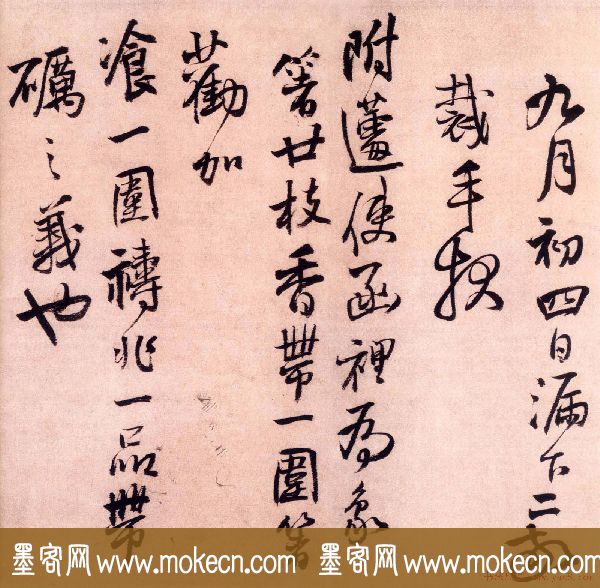 九月初四日漏下二
裁手牍
附蘧使函裡为象
箸廿枝香帶一圍箸
廿勸加
飡一圍禱兆一品帶
礪之義也
墨客网 www.mokecn.com 墨客网 www.mokecn.com